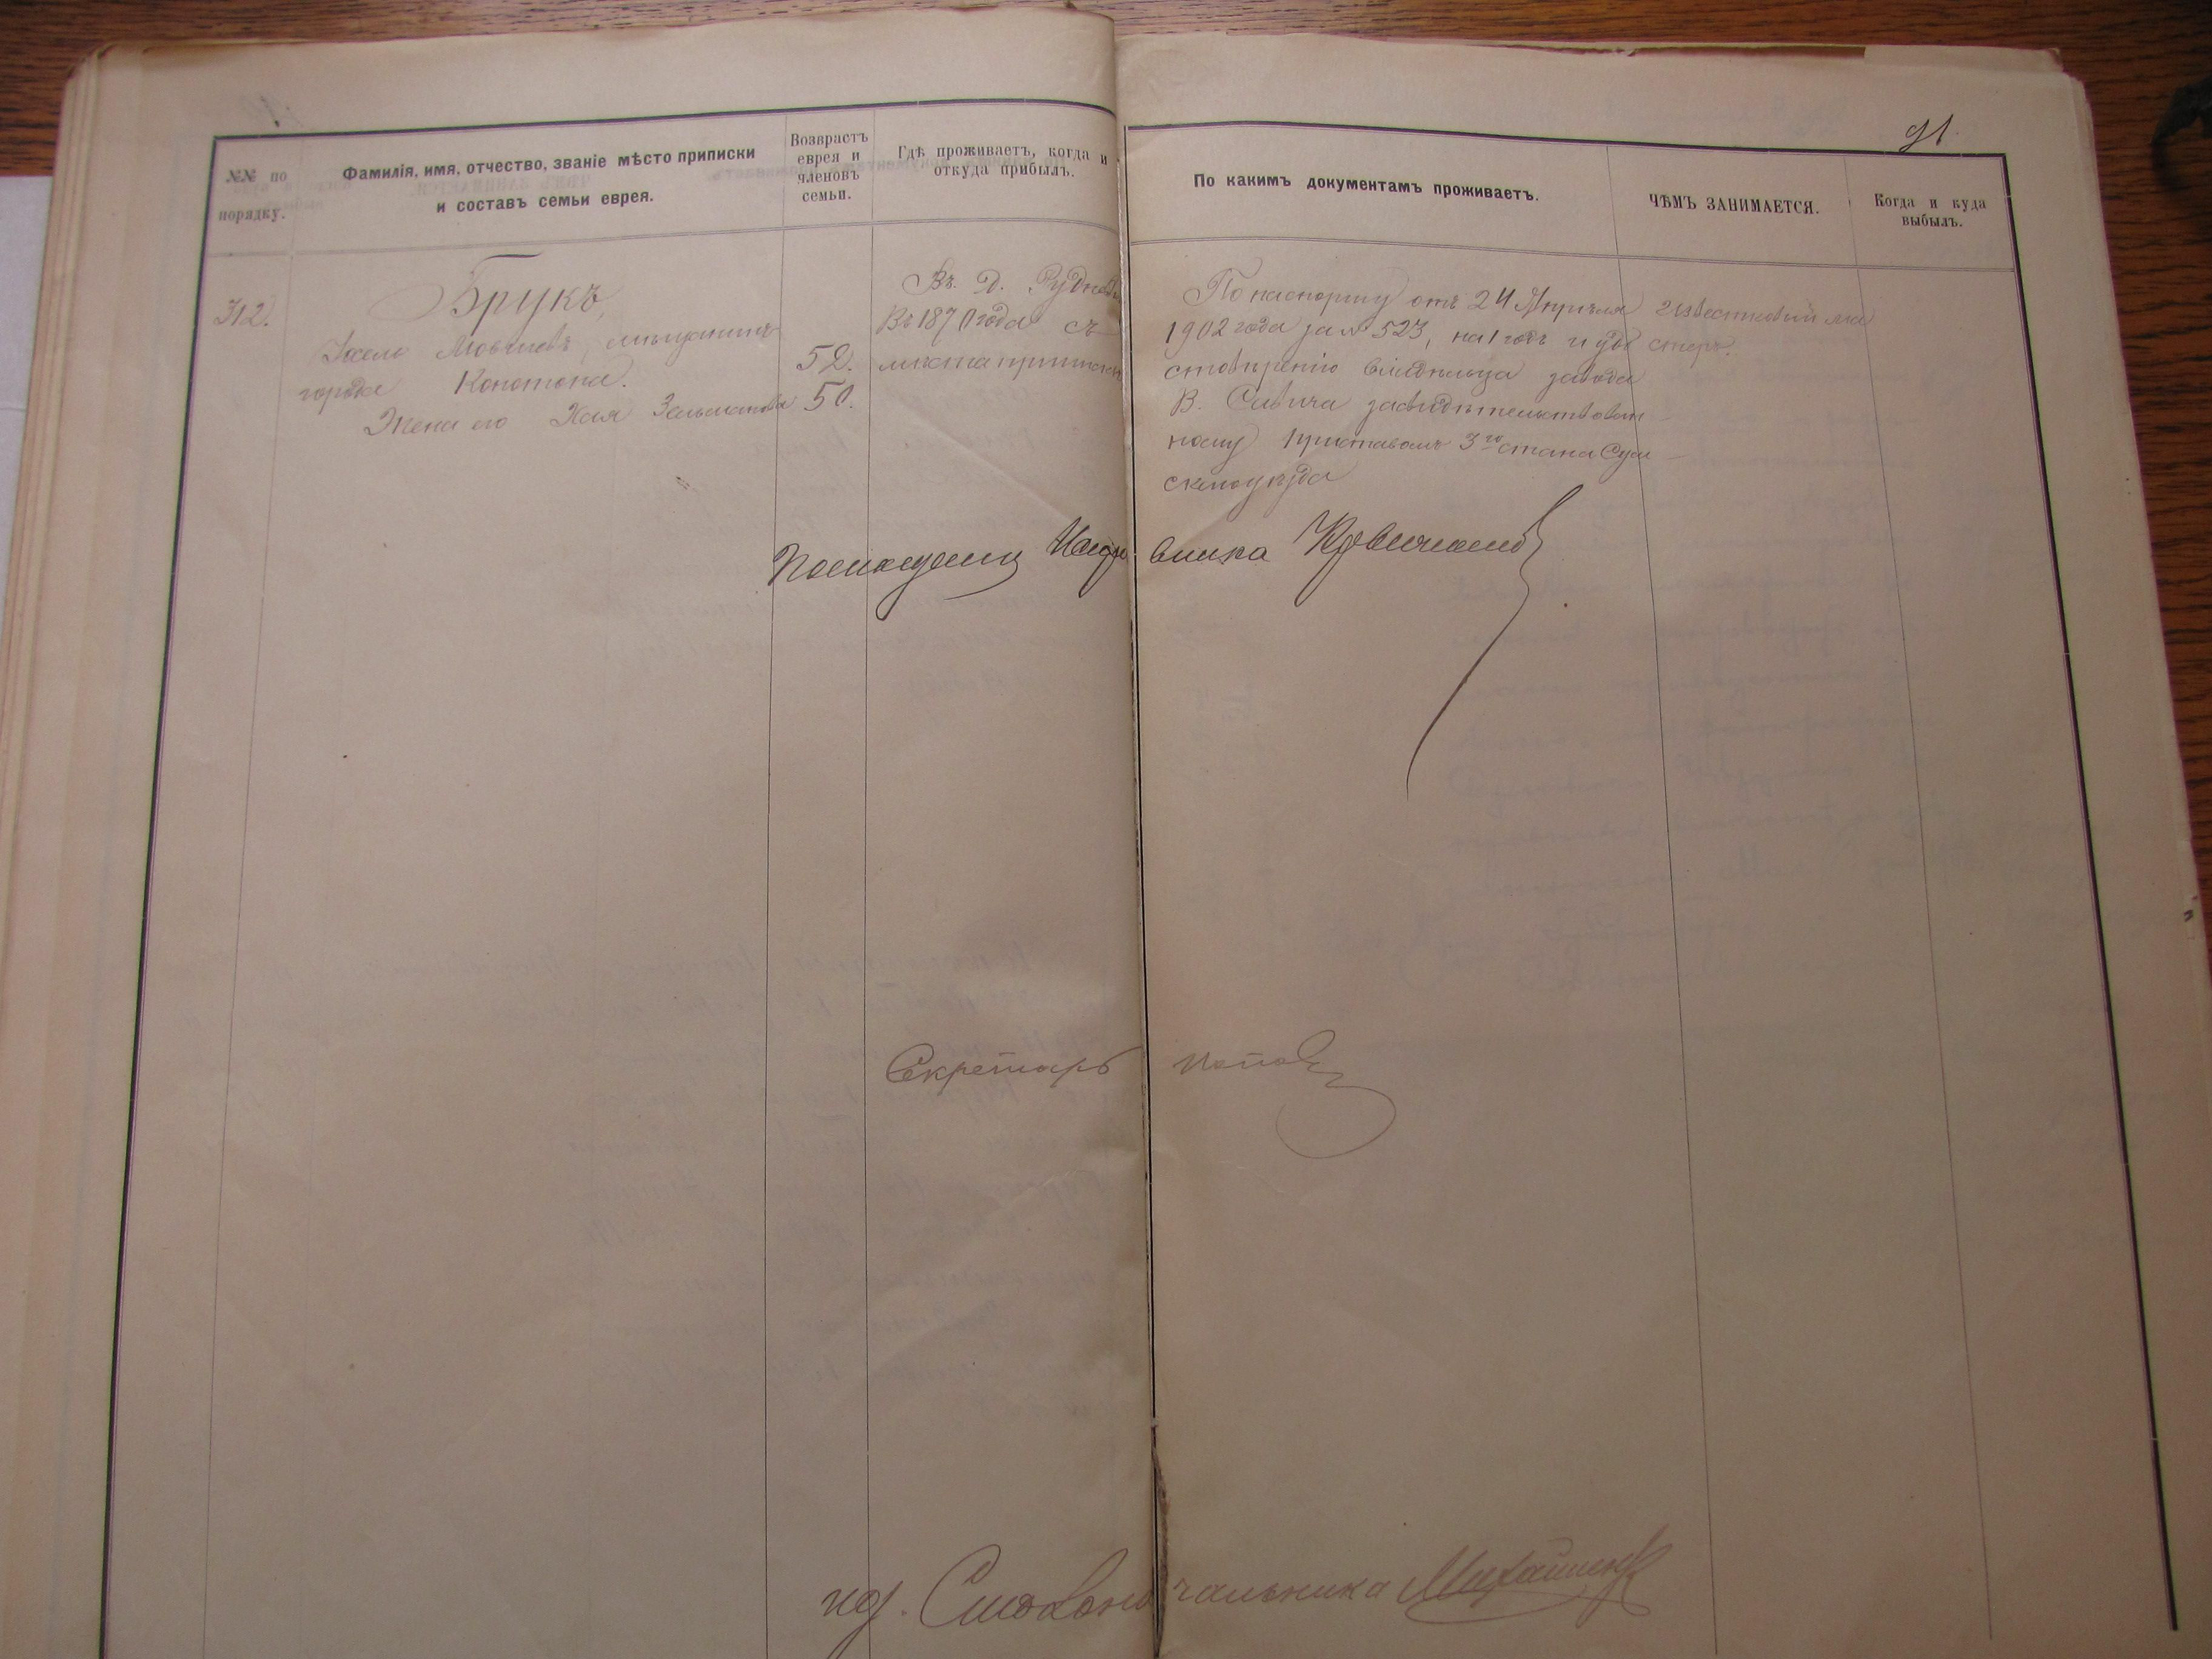 91
№№ по порядку.
Фамилія, имя, отчество, званіе мѣсто приписки
и составъ семьи еврея.
Возврастъ
еврея и
членовъ
семьи.
Гдѣ проживаетъ, когда и
откуда прибылъ.
По какимъ документамъ проживаетъ.
ЧѢМЪ ЗАНИМАЕТСЯ.
Когда и куда
выбылъ.
312.
Брукъ,
мѣщанинъ
города Конотопа.
Жена его Хая
52.
50.
Въ д.
Въ 1870 года съ
мѣста приписки
По паспорту отъ 24 Апрѣля
1902 года за № 523, на 1 годъ и удо
стовѣренію владѣльца завода
В. Савича засвидѣтельствован
ному Приставомъ 3го стана Сум
скаго уѣзда
стеръ.
Секретарь Попов
Столоначальника